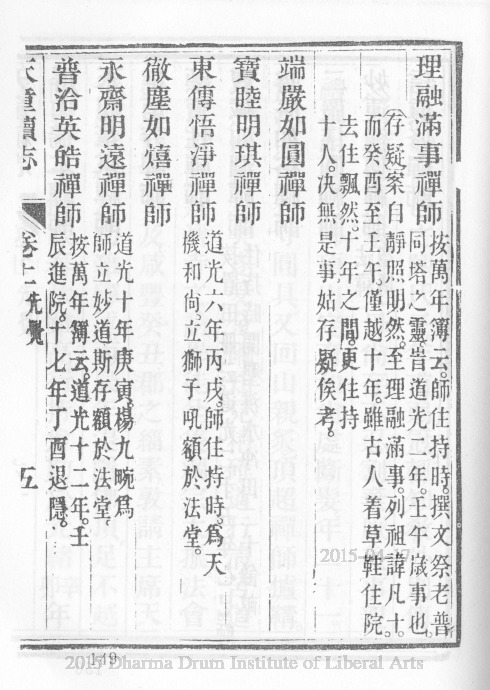 理融滿事禪師
按萬年簿云。師住持時。撰文祭老普
同塔之靈。旹道光二年。壬午歲事也。
(存疑)案自靜照明然。至理融滿事。列祖諱凡十。
而癸酉至壬午。僅越十年。雖古人着草鞋住院。
去住飄然。十年之間。更住持
十人。决無是事。姑存疑俟考。
端嚴如圓禪師
寶睦明琪禪師
東傳悟淨禪師
道光六年丙戌。師住持時。爲天
機和尙。立獅子吼額於法堂。
徹塵如熺禪師
永齋明遠禪師
道光十年庚寅。楊九畹爲
師立妙道斯存額於法堂。
普洽英皓禪師
按萬年簿云。道光十二年。壬
辰進院。十七年丁酉退隱。
天童續志
卷上 先覺
五
2015-04-17
149
2015 Dharma Drum Institute of Liberal Arts